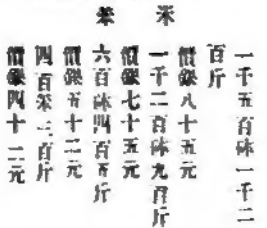 一千五百砵一千二
百斤
價銀八十五元
一千二百砵九百斤
價銀七十五元
六百砵四百五斤
價銀五十二元
四百三百斤
價銀四十二元